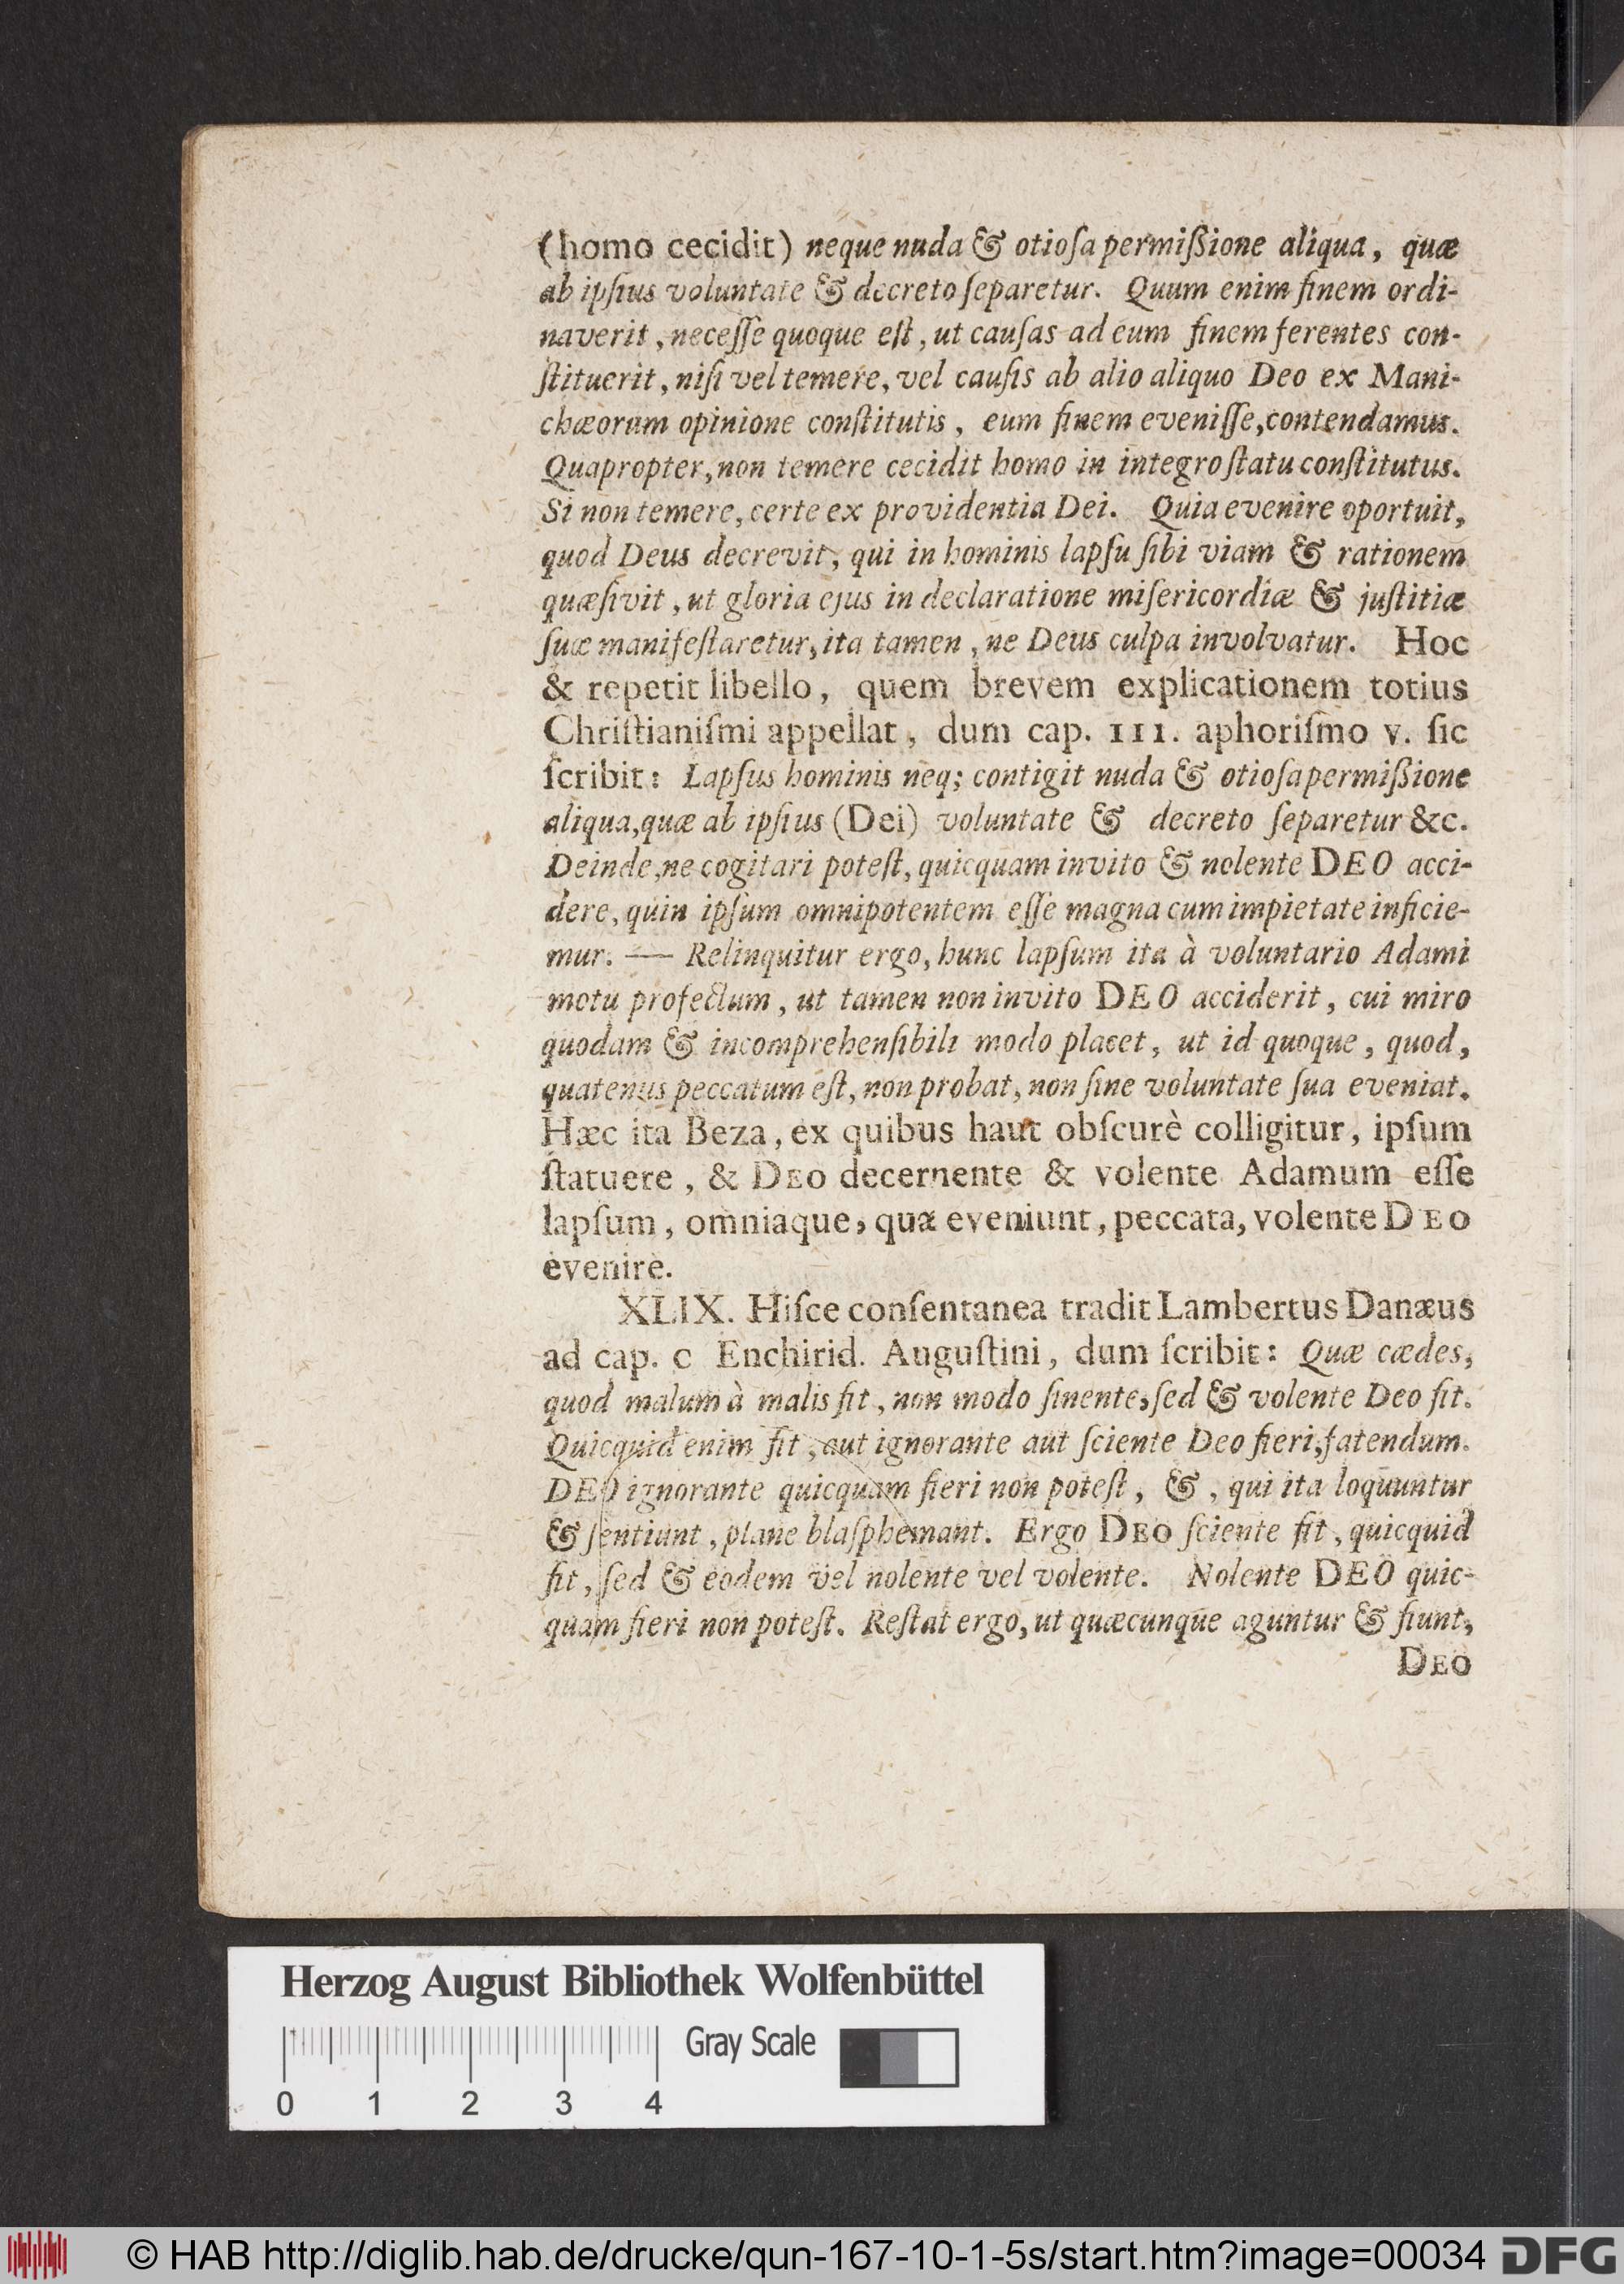 (homo cecidit) neque nuda & otioſa permiſſione aliqua, quæ
ab ipſius voluntate & decreto ſeparetur. Quum enim finem ordi-
naverit, neceſſe quoque eſt, ut cauſas ad eum finem ferentes con-
ſtituerit, niſi vel temere, vel cauſis ab alio aliquo Deo ex Mani-
chæorum opinione conſtitutis, eum finem eveniſſe, contendamus.
Quapropter, non temere cecidit homo in integro ſtatu conſtitutus.
Si non temere, certe ex providentia Dei. Quia evenire oportuit,
quod Deus decrevit, qui in hominis lapſu ſibi viam & rationem
quæſivit, ut gloria ejus in declaratione miſericordiæ & juſtitiæ
ſuæ manifeſtaretur, ita tamen, ne Deus culpa involvatur. Hoc
& repetit libello, quem brevem explicationem totius
Chriſtianiſmi appellat, dum cap. III. aphoriſmo v. ſic
ſcribit: Lapſus hominis neq; contigit nuda & otioſa permiſſione
aliqua, quæ ab ipſius (Dei) voluntate & decreto ſeparetur &c.
Deinde, ne cogitari poteſt, quicquam invito & nolente DEO acci-
dere, quin ipſum omnipotentem eſſe magna cum impietate inficie-
mur. — Relinquitur ergo, hunc lapſum ita à voluntario Adami
motu profectum, ut tamen non invito DEO acciderit, cui miro
quodam & incomprehenſibili modo placet, ut id quoque, quod,
quatenus peccatum eſt, non probat, non ſine voluntate ſua eveniat.
Hæc ita Beza, ex quibus haut obſcurè colligitur, ipſum
ſtatuere, & DEO decernente & volente Adamum eſſe
lapſum, omniaque, quæ eveniunt, peccata, volente DEO
evenire.
XLIX. Hiſce conſentanea tradit Lambertus Danæus
ad cap. c Enchirid. Auguſtini, dum ſcribit: Quæ cædes,
quod malum à malis fit, non modo ſinente, ſed & volente Deo fit.
Quicquid enim fit, aut ignorante aut ſciente Deo fieri, fatendum.
DEO ignorante quicquam fieri non poteſt, &, qui ita loquuntur
& ſentiunt, plane blaſphemant. Ergo DEO ſciente fit, quicquid
fit, ſed & eodem vel nolente vel volente. Nolente DEO quic-
quam fieri non poteſt. Reſtat ergo, ut quæcunque aguntur & fiunt,
DEO
Herzog August Bibliothek Wolfenbüttel
Gray Scale
0 1 2 3 4
© HAB http://diglib.hab.de/drucke/qun-167-10-1-5s/start.htm?image=00034 DFG